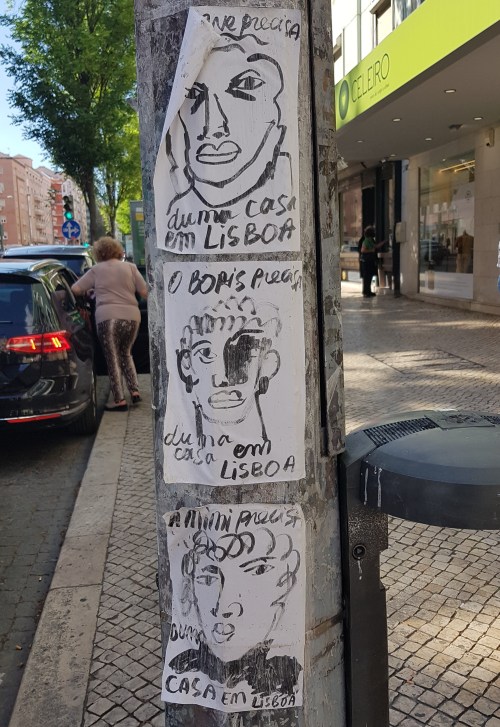 precisa
duma casa
em LISBOA
O BORIS precisa
duma
casa em
LISBOA
A MIMI precisa
DUMA
CASA EM LISBOA
CELEIRO